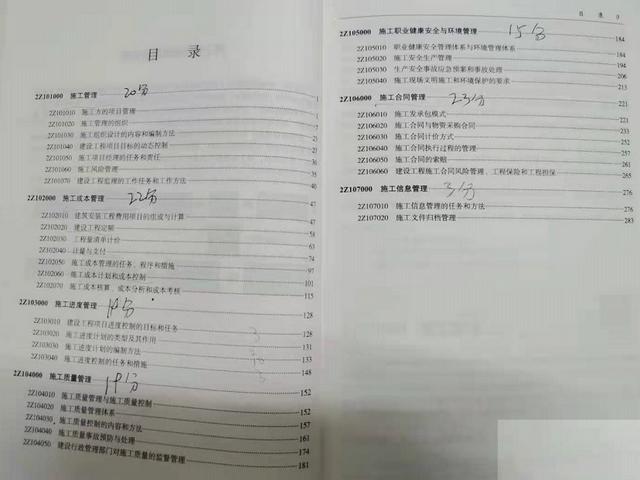 目 录
2Z101000 施工管理 20分 1
2Z101010 施工方的项目管理 1
2Z101020 施工管理的组织
2Z101030 施工组织设计的内容和编制方法
2Z101040 建设工程项目目标的动态控制
2Z101050 施工项目经理的任务和责任
2Z101060 施工风险管理
2Z101070 建设工程监理的工作任务和工作方法 46
2Z102000 施工成本管理 22分
2Z102010 建筑安装工程费用项目的组成与计算 47
2Z102020 建设工程定额 58
2Z102030 工程量清单计价 63
2Z102040 计量与支付 74
2Z102050 施工成本管理的任务、程序和措施 97
2Z102060 施工成本计划和成本控制 101
2Z102070 施工成本核算、成本分析和成本考核 115
2Z103000 施工进度管理 128
2Z103010 建设工程项目进度控制的目标和任务 128
2Z103020 施工进度计划的类型及其作用 131
2Z103030 施工进度计划的编制方法 133
2Z103040 施工进度控制的任务和措施 148
2Z104000 施工质量管理 19分 152
2Z104010 施工质量管理与施工质量控制 152
2Z104020 施工质量管理体系 157
2Z104030 施工质量控制的内容和方法 161
2Z104040 施工质量事故预防与处理 174
2Z104050 建设行政管理部门对施工质量的监督管理 181
目 录
2Z105000 施工职业健康安全与环境管理 15分 184
2Z105010 职业健康安全管理体系与环境管理体系 184
2Z105020 施工安全生产管理 194
2Z105030 生产安全事故应急预案和事故处理 206
2Z105040 施工现场文明施工和环境保护的要求 213
2Z106000 施工合同管理 23分 221
2Z106010 施工发承包模式 221
2Z106020 施工合同与物资采购合同 231
2Z106030 施工合同计价方式
2Z106040 施工合同执行过程的管理 257
2Z106050 施工合同的索赔 261
2Z106060 建设工程施工合同风险管理、工程保险和工程担保 265
2Z107000 施工信息管理 3分 276
2Z107010 施工信息管理的任务和方法 276
2Z107020 施工文件归档管理 283